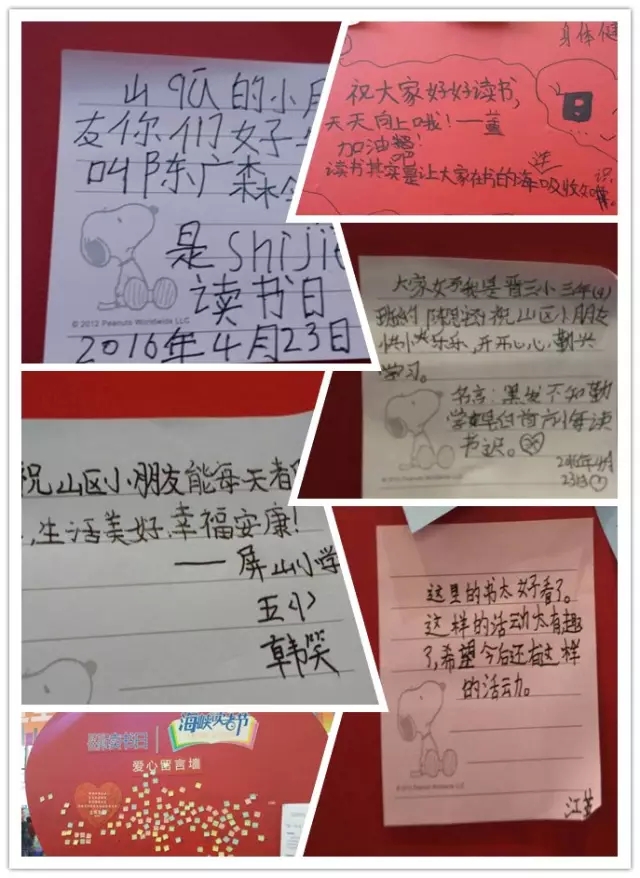 山区的小月
友你们好
叫陈广森
是shijie
读书日
© 2012 Peanuts Worldwide LLC
2016年4月23日
身体健
祝大家好好读书,
天天向上哦!——蓝
加油吧!
读书其实是让大家在书的海洋吸收知识
大家好我是晋三小三年(4)
祝山区小朋友
快快乐乐,开开心心,勤兴
学习。
名言:黑发不知勤
学早白首方悔读
书迟。
2016年4月
23日
© 2012 Peanuts Worldwide LLC
祝山区小朋友能每天看
,生活美好,幸福安康!
——屏山小学
五(1)
韩笑
这里的书太好看了。
这样的活动太有趣
了,希望今后还有这样
的活动。
© 2012 Peanuts Worldwide LLC
读书日
海峡读者节
爱心留言墙